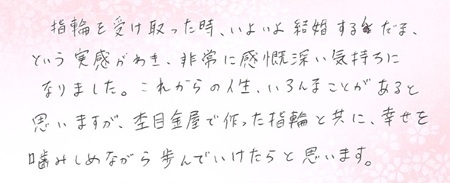 指輪を受け取った時、いよいよ結婚するんだな、
という実感がわき、非常に感慨深い気持ちに
なりました。これからの人生、いろんなことがあると
思いますが、杢目金屋で作った指輪と共に、幸せを
噛みしめながら歩んでいけたらと思います。